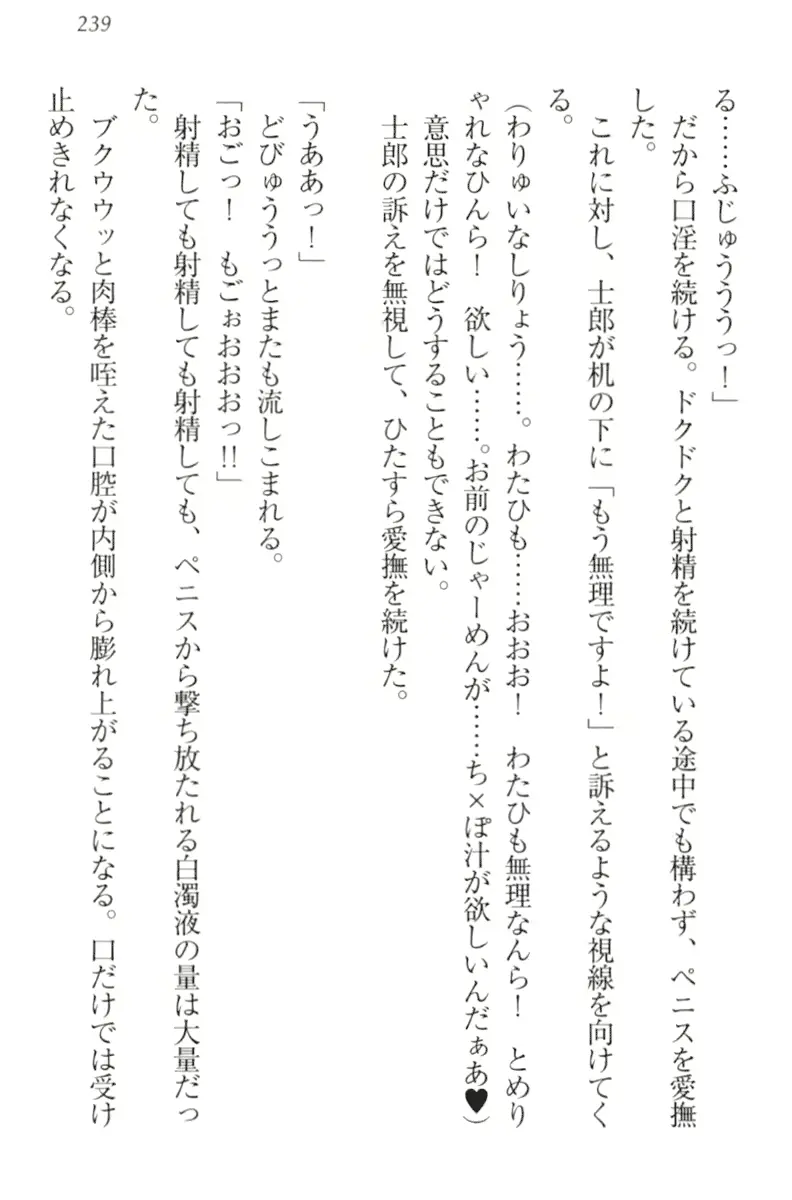 239
る……ふじゅうううっ！」
　だから口淫を続ける。ドクドクと射精を続けている途中でも構わず、ペニスを愛撫
した。
　これに対し、士郎が机の下に「もう無理ですよ！」と訴えるような視線を向けてく
る。
（わりゅいなしりょう……。わたひも……おおお！　わたひも無理なんら！　とめり
ゃれなひんら！　欲しい……。お前のじゃーめんが……ち×ぽ汁が欲しいんだぁあ♥）
　意思だけではどうすることもできない。
　士郎の訴えを無視して、ひたすら愛撫を続けた。
「うああっ！」
　どびゅううっとまたも流しこまれる。
「おごっ！　もごぉおおおっ!!」
　射精しても射精しても射精しても、ペニスから撃ち放たれる白濁液の量は大量だっ
た。
　ブクウウッと肉棒を咥えた口腔が内側から膨れ上がることになる。口だけでは受け
止めきれなくなる。